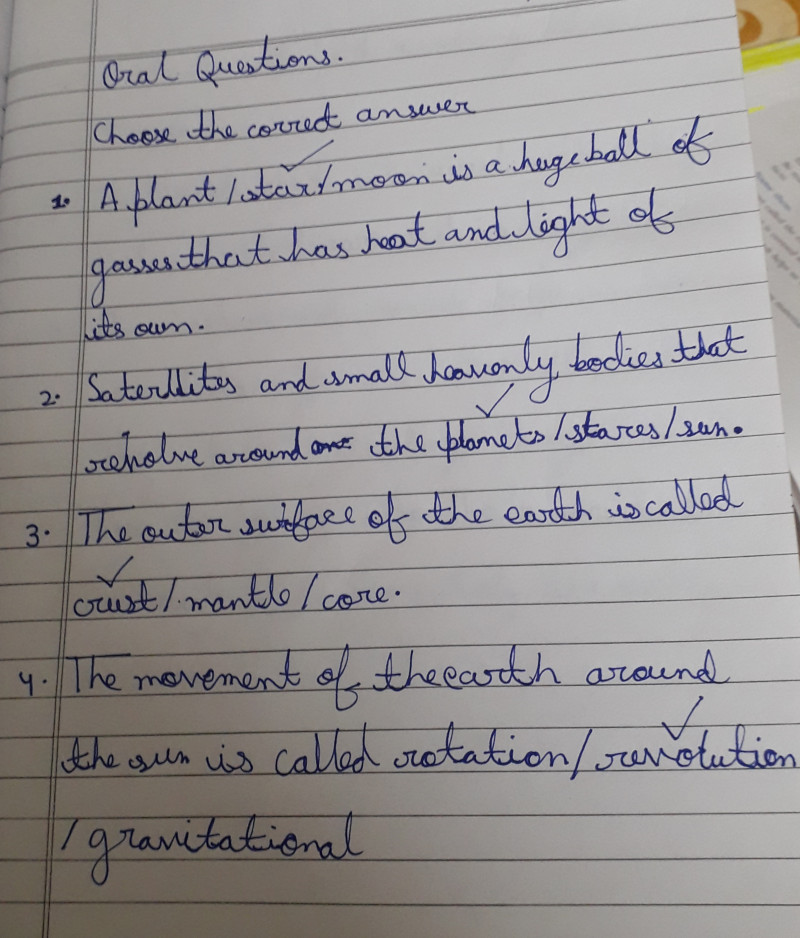 Oral Questions.
Choose the correct answer
1. A plant/star/moon is a huge ball of
gasses that has heat and light of
its own.
2. Saterllites and small heavenly bodies that
reholve around the planets/stares/sun.
3. The outer surface of the earth is called
crust/mantle/core.
4. The movement of the earth around
the sun is called rotation/revolution
/gravitational